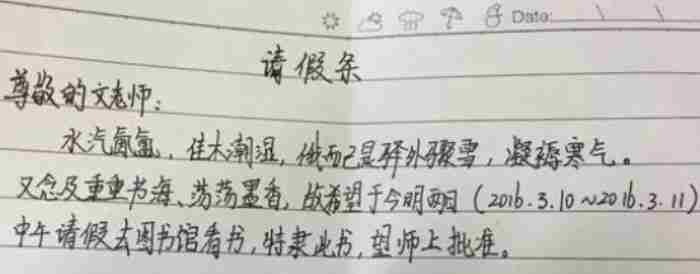 Date:
请假条
尊敬的文老师:
水汽氤氲,佳木潮湿,俄而已是驿外骤雪,凝褥寒气。
又念及重重书海、荡荡墨香,故希望于今明两日(2016.3.10~2016.3.11)
中午请假去图书馆看书,特隶此书,望师上批准。